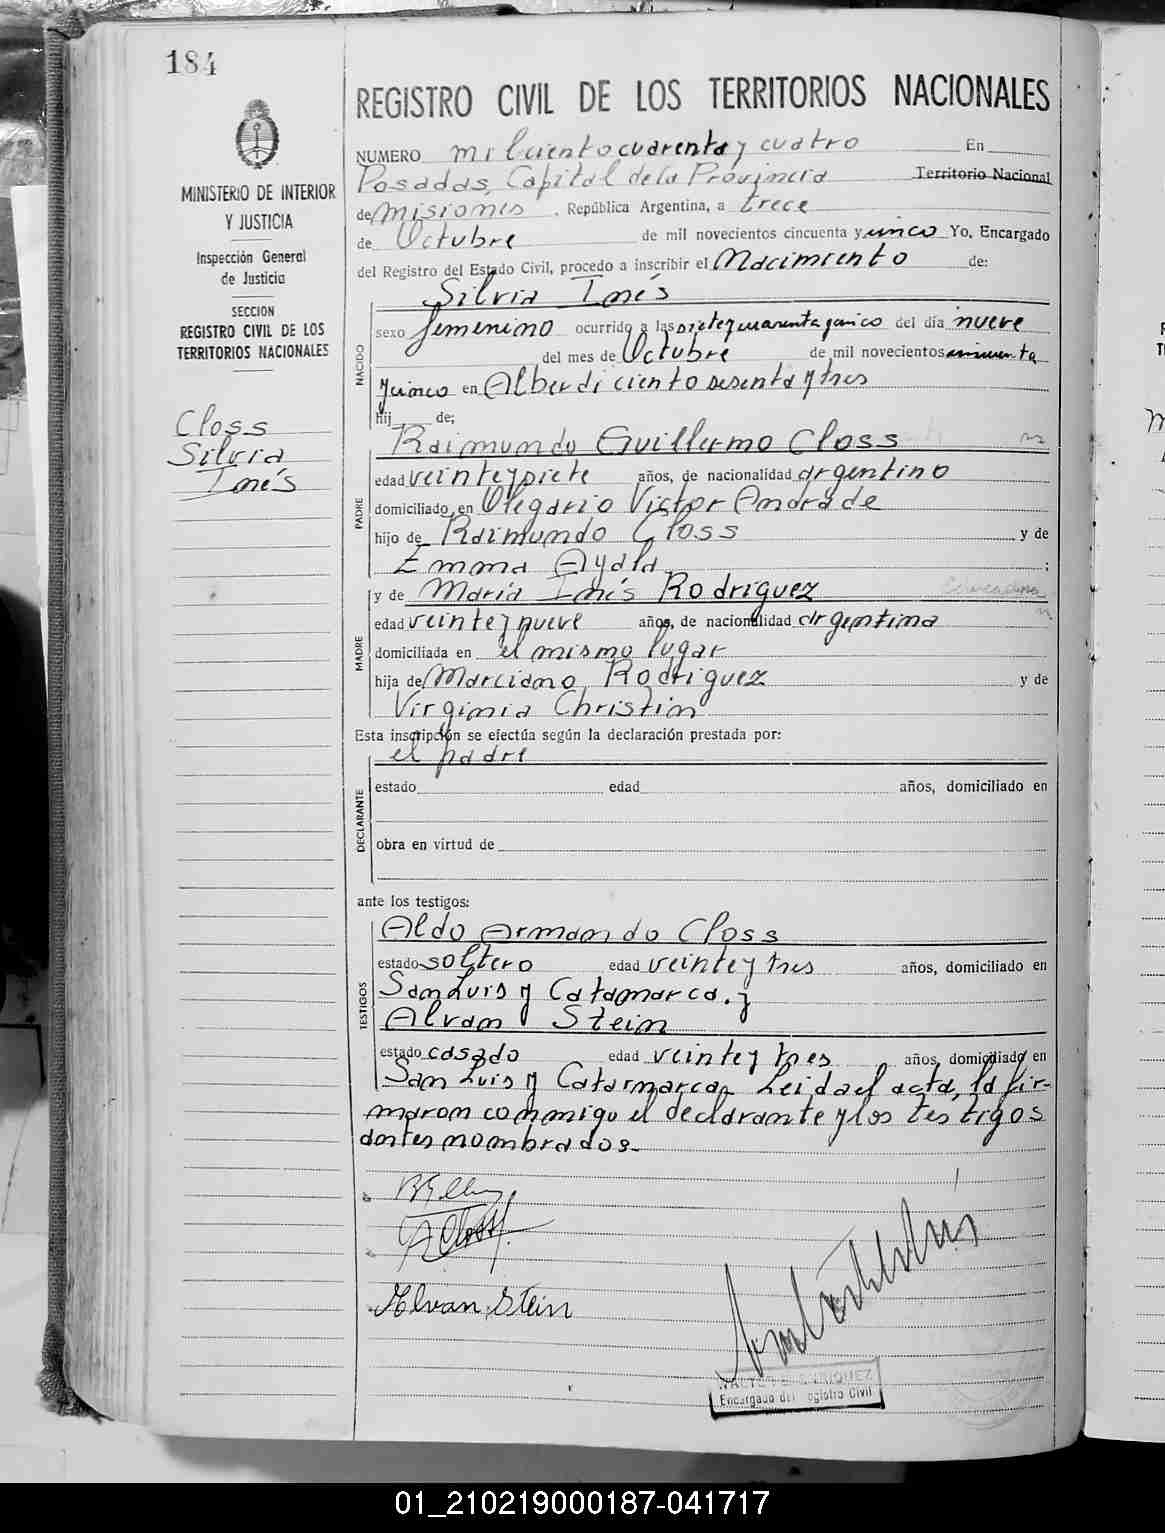 184
MINISTERIO DE INTERIOR
Y JUSTICIA
Inspección General
de Justicia
SECCION
REGISTRO CIVIL DE LOS
TERRITORIOS NACIONALES
Closs
Silvia
Inés
REGISTRO CIVIL DE LOS TERRITORIOS NACIONALES
NUMERO mil ciento cuarenta y cuatro En
Posadas, Capital de la Provincia Territorio Nacional
de Misiones, República Argentina, a trece
de Octubre de mil novecientos cincuenta y cinco Yo, Encargado
del Registro del Estado Civil, procedo a inscribir el Nacimiento de:
Silvia Inés
NACIDO
sexo femenino ocurrido a las siete y cuarenta y cinco del día nueve
del mes de Octubre de mil novecientos cincuenta
y cinco en Alberdi ciento sesenta y tres
hij de;
Raimundo Guillermo Closs
PADRE
edad veinte y siete años, de nacionalidad argentino
domiciliado en Olegario Victor Andrade
hijo de Raimundo Closs y de
Emma Ayala ;
y de María Inés Rodríguez
MADRE
edad veinte y nueve años, de nacionalidad argentina
domiciliada en el mismo lugar
hija de Marciano Rodríguez y de
Virginia Christin
Esta inscripción se efectúa según la declaración prestada por:
el padre
DECLARANTE
estado edad años, domiciliado en
obra en virtud de
ante los testigos:
Aldo Armando Closs
TESTIGOS
estado soltero edad veinte y tres años, domiciliado en
San Luis y Catamarca. y
Alvan Stein
estado casado edad veinte y tres años, domiciliado en
San Luis y Catarmarca Leida el acta, la fir-
maron conmigo el declarante y los testigos
antes nombrados.-
A Closs
Alvan Stein
Encargado del Registro Civil
01_210219000187-041717